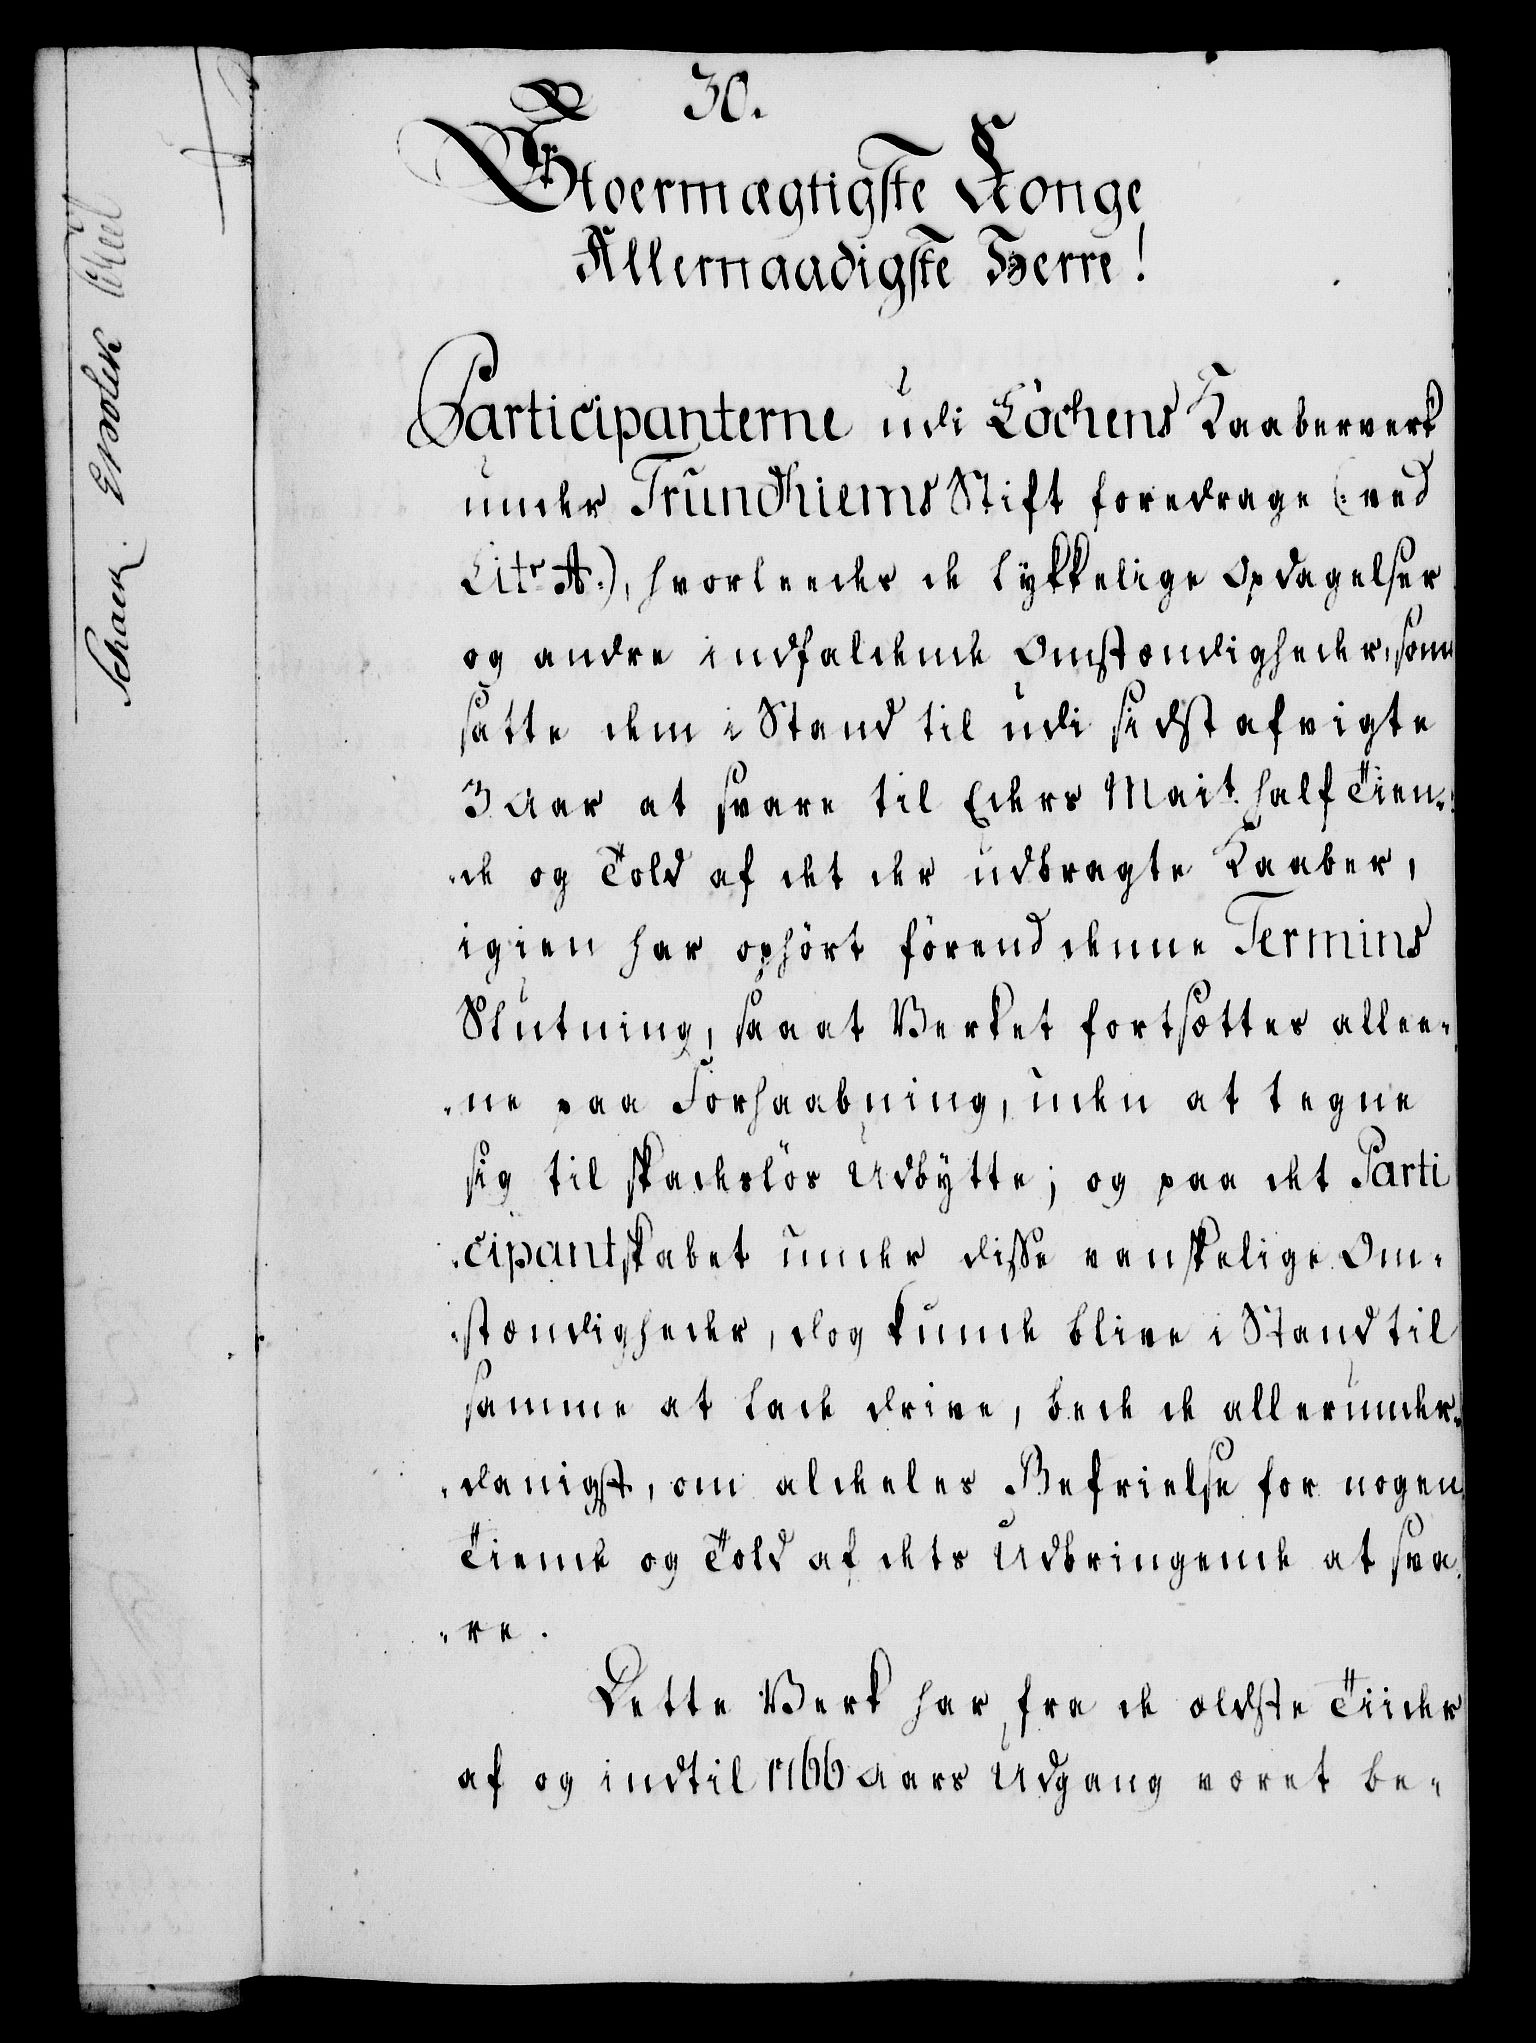 30.
Stoermægtigste Konge
Allernaadigste Herre!
Participanterne udi Löchens Kaaberverk
under Trundhiems Stift foredrage (: ved
Litr A:), hvorleedes de lykkelige Opdagelser
og andre indfaldende Omstændigheder, som
satte dem i Stand til udi sidstafvigte
3 Aar at svare til Eders Mait. half Tien-
-de og Told af det der udbragte Kaaber,
igien har ophört förend denne Termins
Slutning, saaat Verket fortsættes allee-
-ne paa Forhaabning, uden at tegne
sig til skadeslös Udbytte; og paa det Parti
-cipantskabet under disse vanskelige Om-
-stændigheder, dog kunde blive i Stand til
samme at lade drive, bede de allerunder-
-danigst, om aldeeles Befrielse for nogen
Tiende og Told af dets Udbringende at sva
-re.
Dette Verk har fra de ældste Tiider
af og indtil 1766 Aars Udgang været be-
Schack